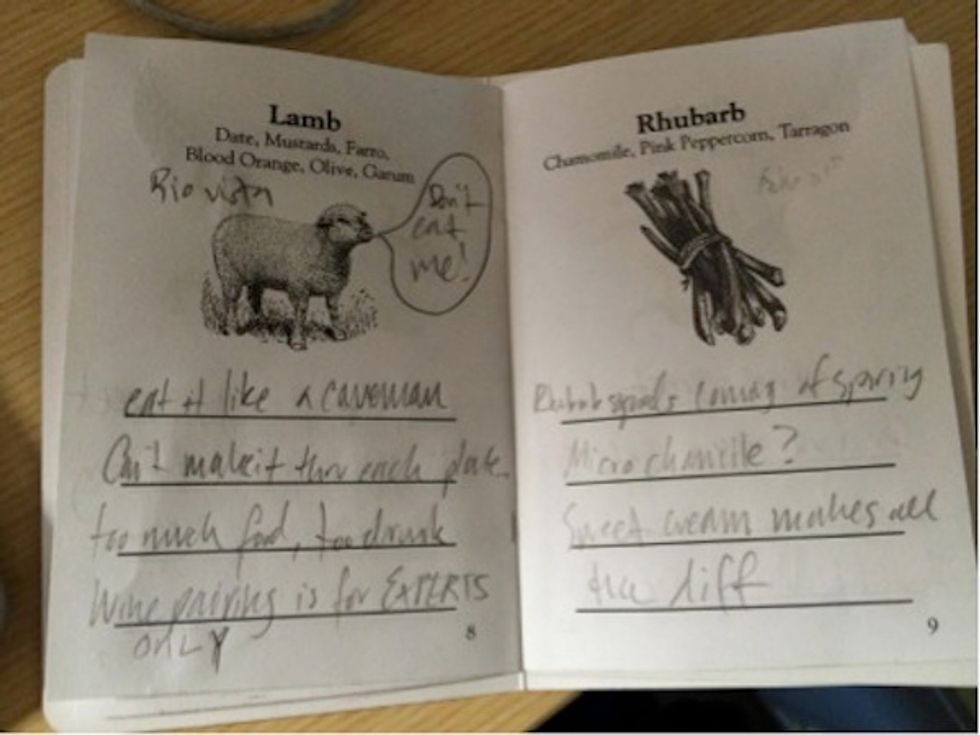 Lamb
Date, Mustards, Farro,
Blood Orange, Olive, Garum
Rio vista
Don't
eat
me!
eat it like a caveman
Can't make it thru each plate
too much food, too drunk
Wine pairing is for EXPERTS
ONLY
8
Rhubarb
Chamomile, Pink Peppercorn, Tarragon
Rhubarb signals coming of spring
Micro ?
Sweet cream makes all
the diff
9